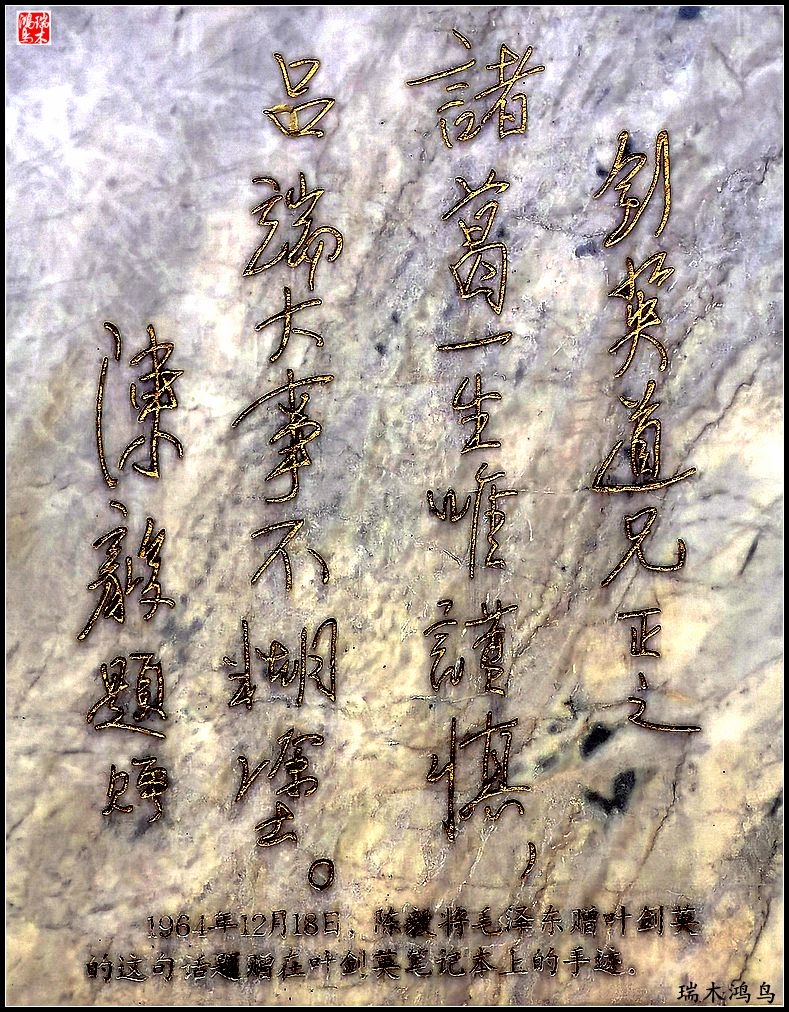 剑英道兄正之
諸葛一生唯謹慎，
吕端大事不糊塗。
陳毅題贈
1964年12月18日，陈毅将毛泽东赠叶剑英
的这句话题赠在叶剑英笔记本上的手迹。
瑞木鸿鸟
瑞木鸿鸟